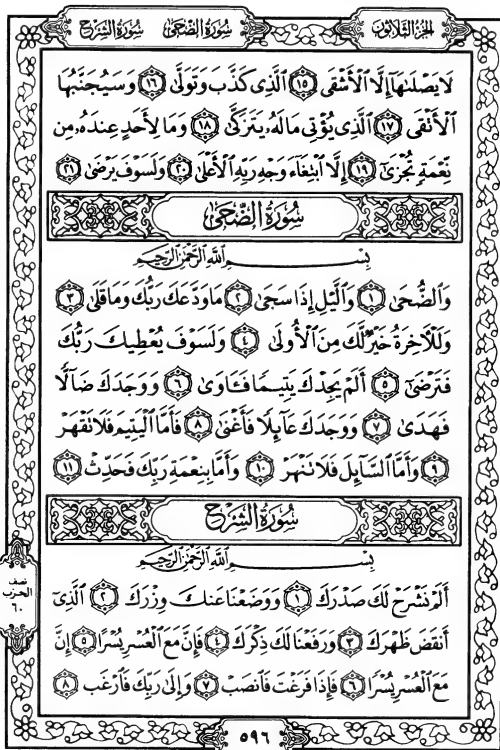 سُورَةُ الشَّرْحِ سُورَةُ الضُّحَىٰ الجُزءُ الثَّلَاثُونَ
لَا يَصْلَىٰهَآ إِلَّا ٱلْأَشْقَى ١٥ ٱلَّذِى كَذَّبَ وَتَوَلَّىٰ ١٦ وَسَيُجَنَّبُهَا
ٱلْأَتْقَى ١٧ ٱلَّذِى يُؤْتِى مَالَهُۥ يَتَزَكَّىٰ ١٨ وَمَا لِأَحَدٍ عِندَهُۥ مِن
نِّعْمَةٍ تُجْزَىٰٓ ١٩ إِلَّا ٱبْتِغَآءَ وَجْهِ رَبِّهِ ٱلْأَعْلَىٰ ٢٠ وَلَسَوْفَ يَرْضَىٰ ٢١
سُورَةُ الضُّحَىٰ
بِسْمِ ٱللَّهِ ٱلرَّحْمَٰنِ ٱلرَّحِيمِ
وَٱلضُّحَىٰ ١ وَٱلَّيْلِ إِذَا سَجَىٰ ٢ مَا وَدَّعَكَ رَبُّكَ وَمَا قَلَىٰ ٣
وَلَلْءَاخِرَةُ خَيْرٌ لَّكَ مِنَ ٱلْأُولَىٰ ٤ وَلَسَوْفَ يُعْطِيكَ رَبُّكَ
فَتَرْضَىٰٓ ٥ أَلَمْ يَجِدْكَ يَتِيمًا فَـَٔاوَىٰ ٦ وَوَجَدَكَ ضَآلًّا
فَهَدَىٰ ٧ وَوَجَدَكَ عَآئِلًا فَأَغْنَىٰ ٨ فَأَمَّا ٱلْيَتِيمَ فَلَا تَقْهَرْ
٩ وَأَمَّا ٱلسَّآئِلَ فَلَا تَنْهَرْ ١٠ وَأَمَّا بِنِعْمَةِ رَبِّكَ فَحَدِّثْ ١١
سُورَةُ الشَّرْحِ
بِسْمِ ٱللَّهِ ٱلرَّحْمَٰنِ ٱلرَّحِيمِ
أَلَمْ نَشْرَحْ لَكَ صَدْرَكَ ١ وَوَضَعْنَا عَنكَ وِزْرَكَ ٢ ٱلَّذِىٓ
أَنقَضَ ظَهْرَكَ ٣ وَرَفَعْنَا لَكَ ذِكْرَكَ ٤ فَإِنَّ مَعَ ٱلْعُسْرِ يُسْرًا ٥ إِنَّ
مَعَ ٱلْعُسْرِ يُسْرًا ٦ فَإِذَا فَرَغْتَ فَٱنصَبْ ٧ وَإِلَىٰ رَبِّكَ فَٱرْغَب ٨
نصف
الحزب
٦٠
٥٩٦